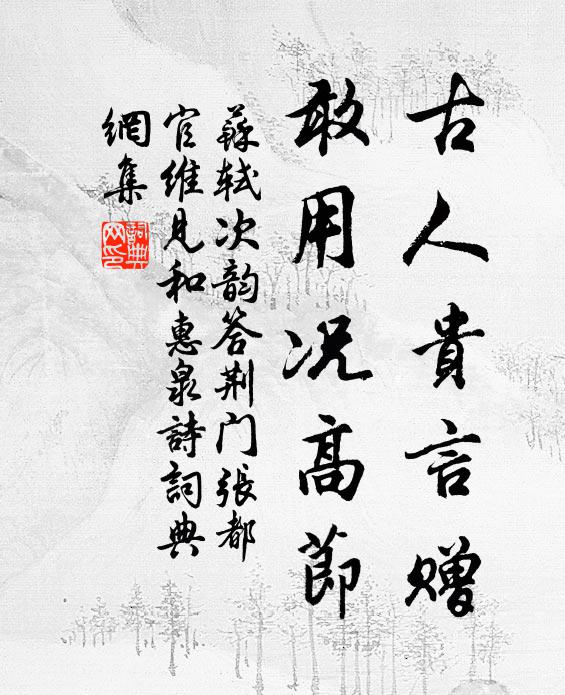 古人貴言贈
敢用况高節
蘇軾次韵答荆门張都
官維見和惠泉詩詞典
網集
詞典
网印